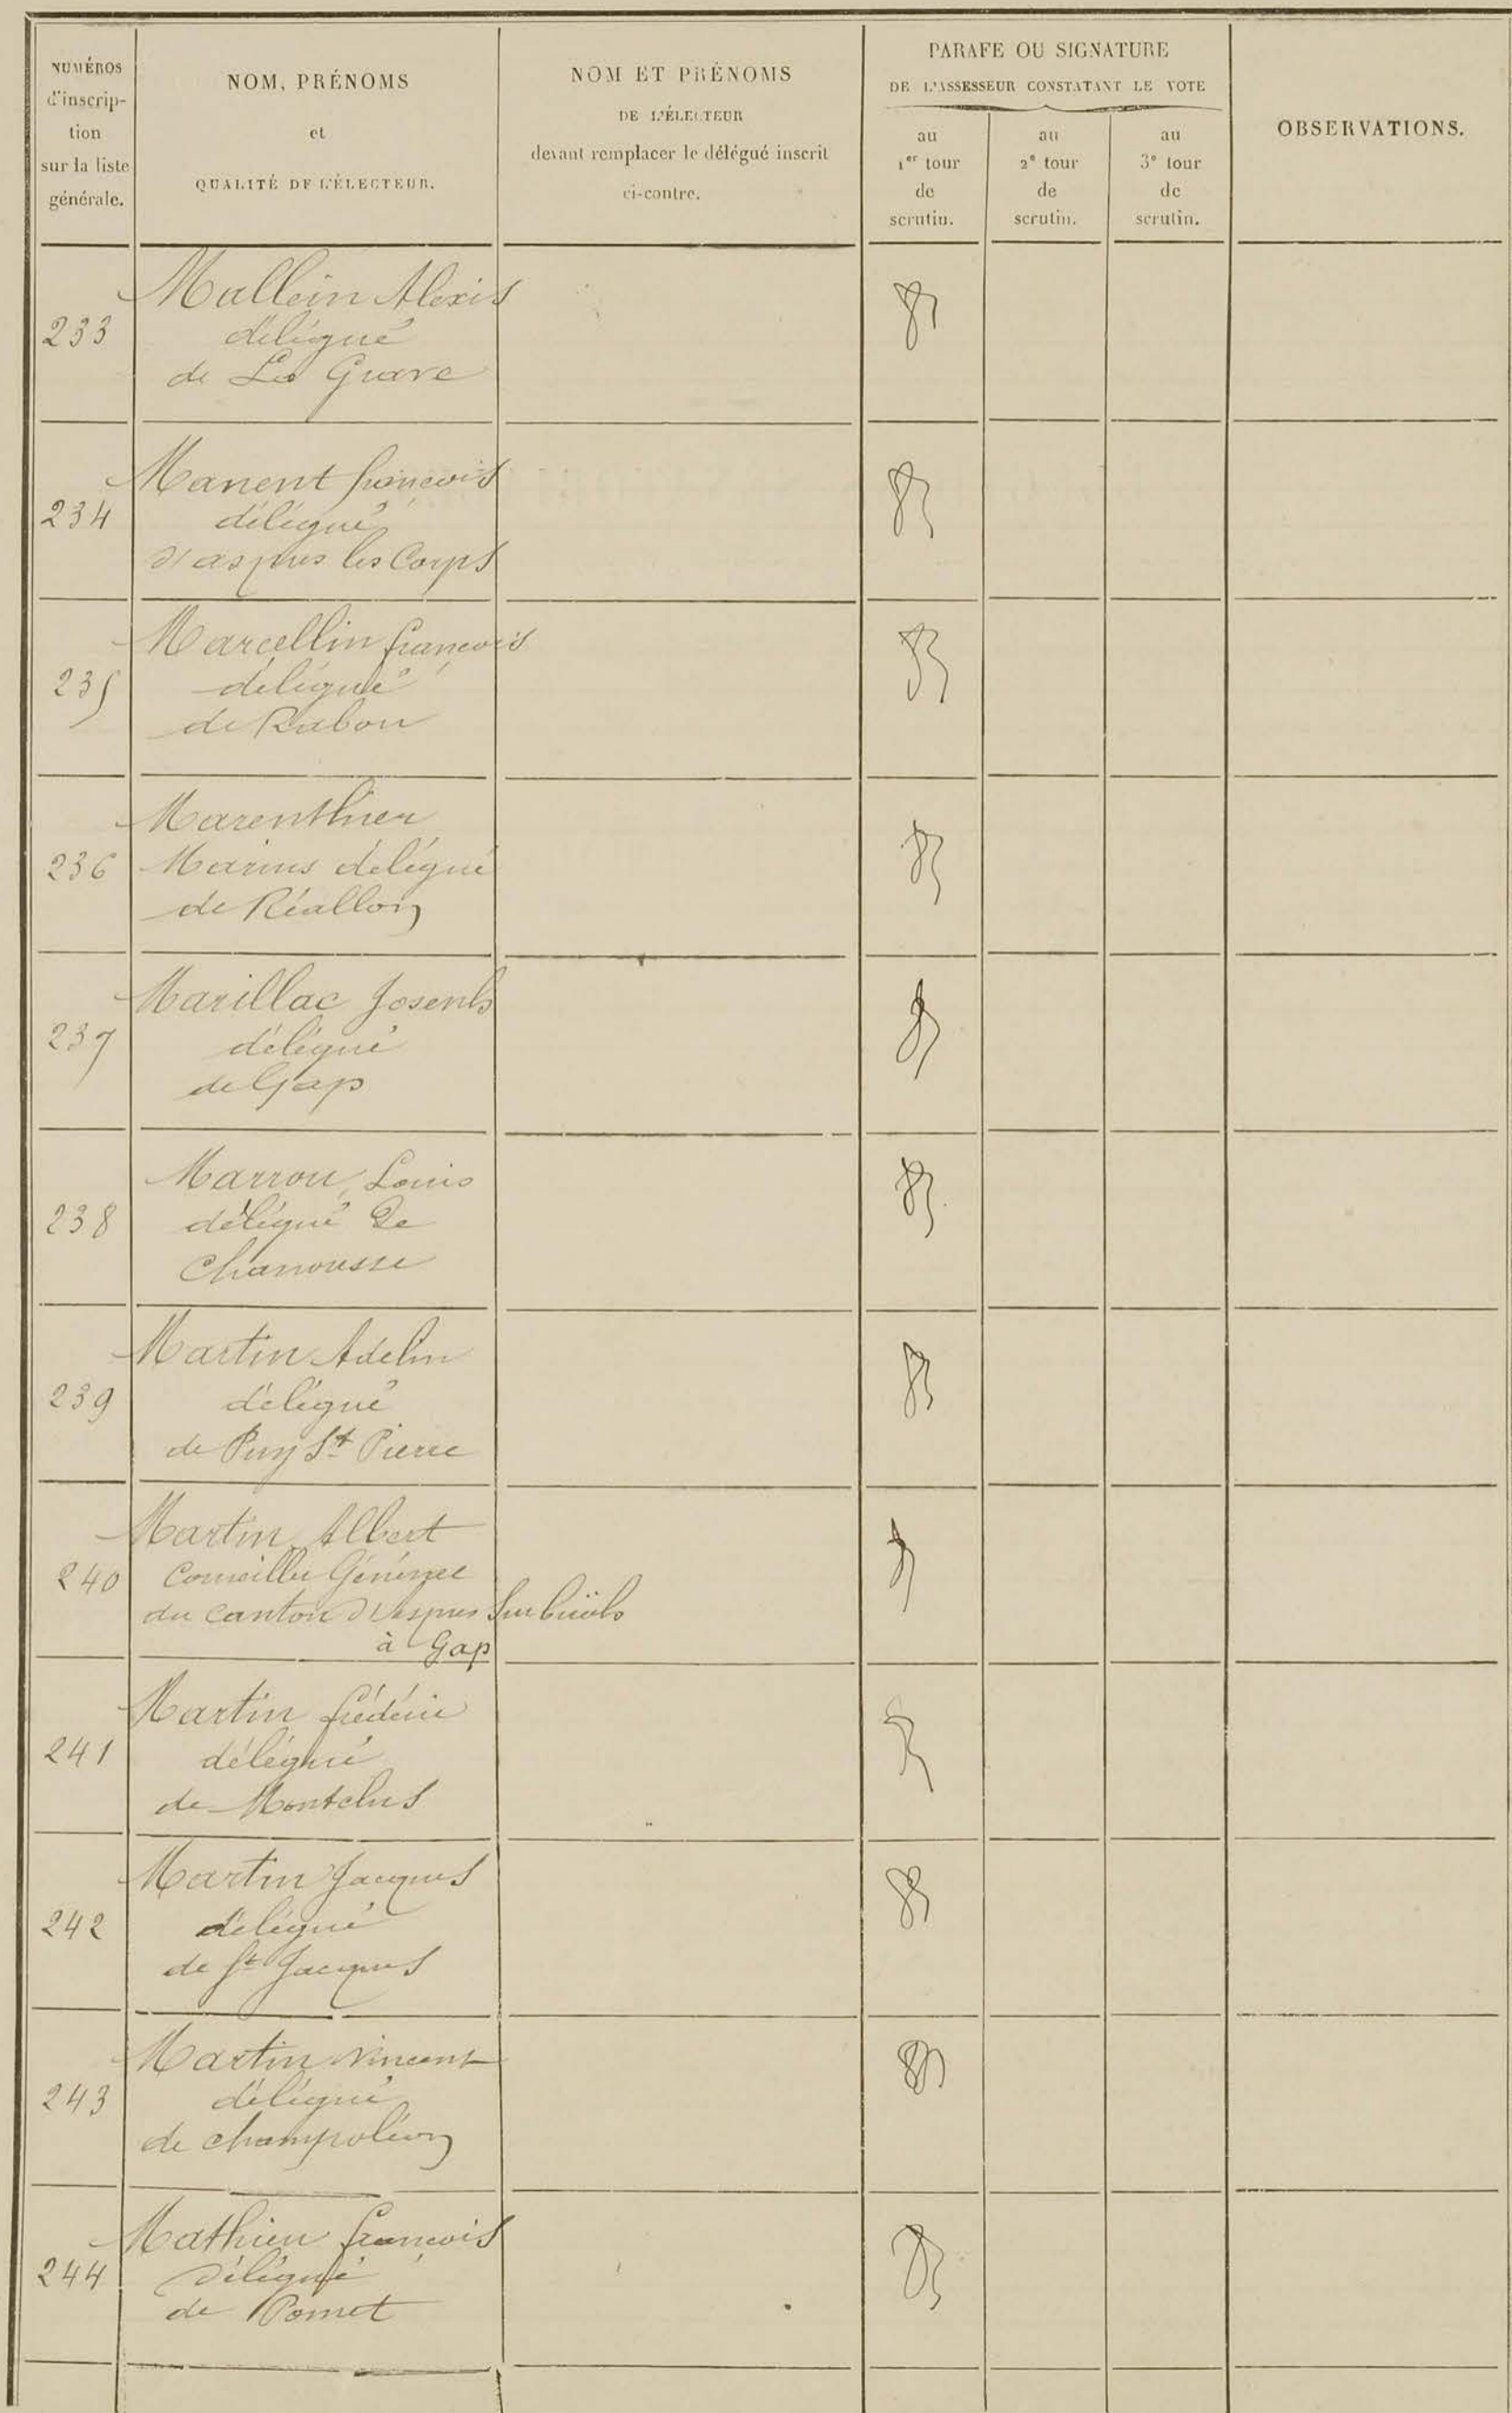 NUMÉROS
d'inscrip-
tion
sur la liste
générale.
NOM, PRÉNOMS
et
QUALITÉ DE L'ÉLECTEUR.
NOM ET PRÉNOMS
DE L'ÉLECTEUR
devant remplacer le délégué inscrit
ci-contre.
PARAFE OU SIGNATURE
DE L'ASSESSEUR CONSTATANT LE VOTE
au
1er tour
de
scrutin.
au
2e tour
de
scrutin.
au
3e tour
de
scrutin.
OBSERVATIONS.
Mallein Alexis
233 délégué
de La Grave
Manent françois
234 délégué
d'aspres les Corps
Marcellin françois
235 délégué
de Rabou
Marenthier
236 Marius délégué
de Réallon
Marillac Joseph
237 délégué
de Gap
Marrou, Louis
238 délégué de
Chanousse
Martin Adelin
239 délégué
de Puy St Pierre
Martin Albert
240 Conseiller Général
du canton d'Aspres Sur buëch
à Gap
Martin frédéric
241 délégué
de Montclus
Martin Jacques
242 délégué
de St Jacques
Martin Vincent
243 délégué
de champoléon
Mathieu françois
244 Délégué
de Pomet